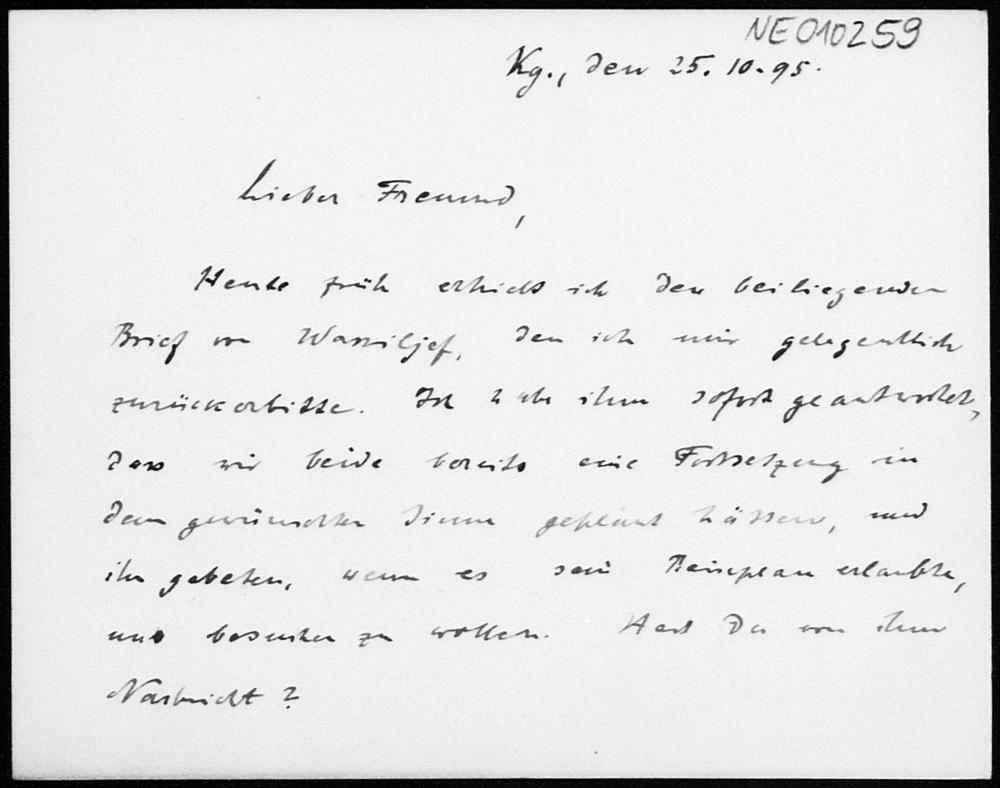 NE010259
Kg., den 25. 10. 95.
Lieber Freund,
Heute früh erhielt ich den beiliegenden
Brief von Wassiljef, den ich mir gelegentlich
zurückerbitte. Ich habe ihm sofort geantwortet,
dass wir beide bereits eine Fortsetzung in
dem gewünschten Sinne geplant hätten, und
ihn gebeten, wenn es sein Reiseplan erlaubte,
uns besuchen zu wollen. Hast Du von ihm
Nachricht?